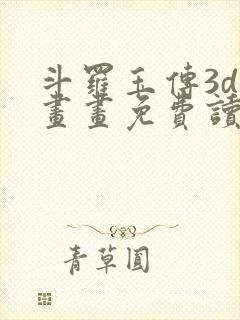 斗羅玉傳3d
畫畫免費讀
青草圓